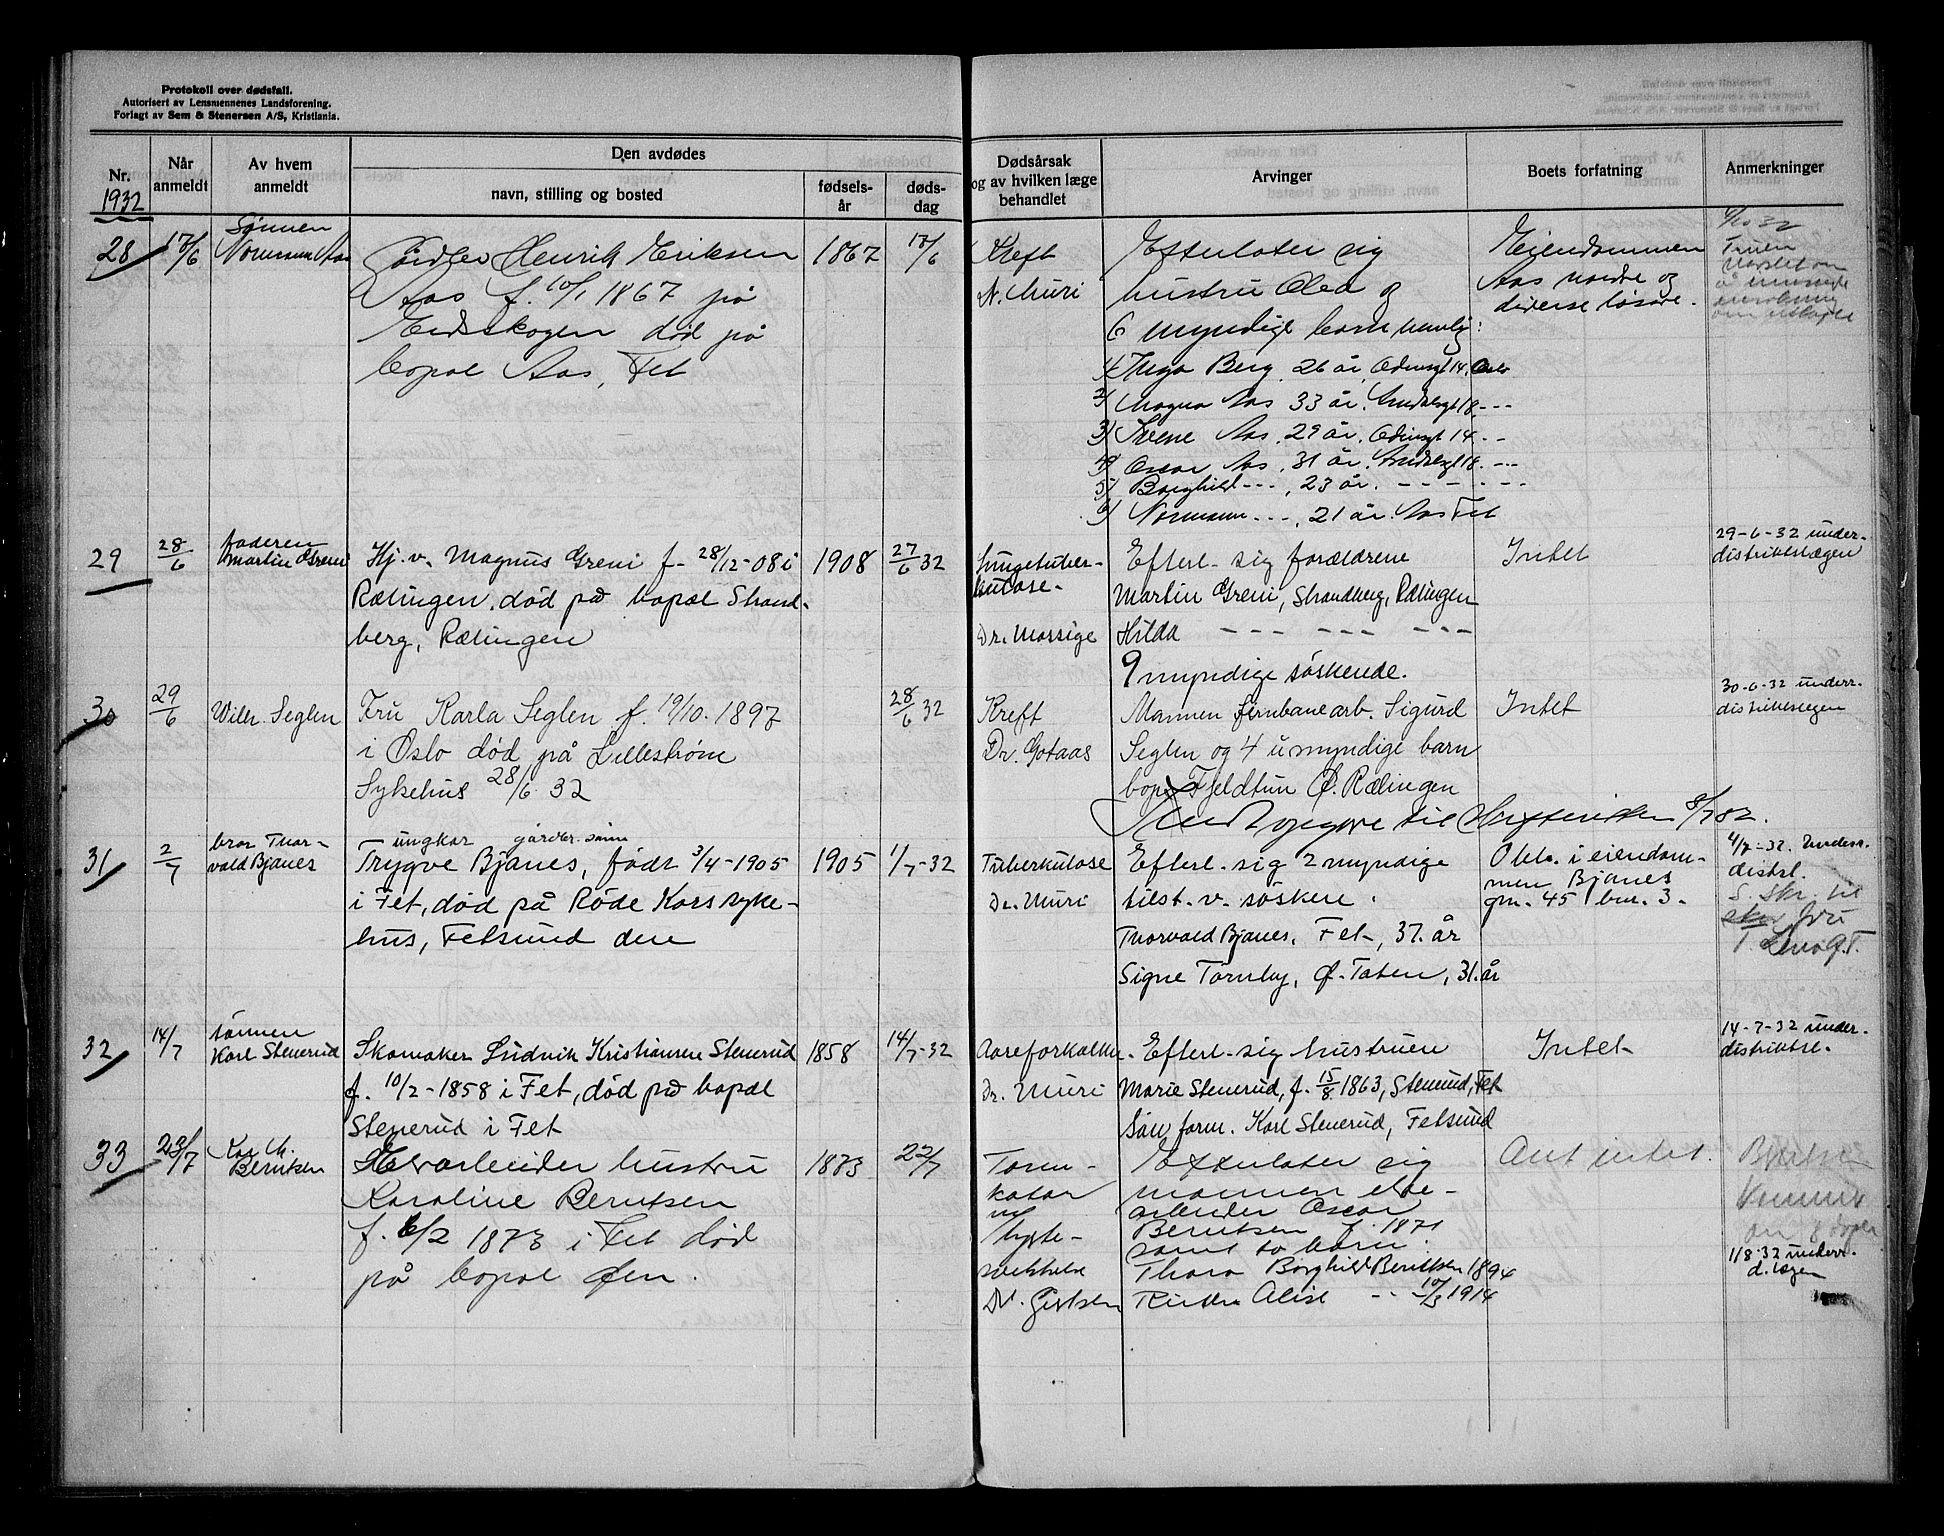 Protokoll over dødsfall.
Autorisert av Lensmennenes Landsforening.
Forlagt av Sem & Stenersen A/S, Kristiania.
Nr.
1932
Når anmeldt
Av hvem anmeldt
Den avdødes
navn, stilling og bosted
fødselsår
dødsdag
Dødsårsak
og av hvilken læge
behandlet
Arvinger
Boets forfatning
Anmerkninger
28
17/6
Sønnen
Normann Aas
Henrik Eriksen
Aas f. 10/1 1867 på
Eidsskogen død på
bopæl Aas, Fet
1867
17/6
Kreft
N. Muri
Efterlater sig
hustru Olea og
6 myndige barn nemlig:
1) Inga Berg, 26 år, Odinsgt 14, Oslo
2) Magna Aas 33 år. 18. - - -
3) Irene Aas, 29 år. Odinsgt 14. - -
4) Oscar Aas, 31 år. 18. - - -
5) Borghild - - -, 23 år. - - - - - -
6) Normann - - -, 21 år. Aas Fet
Eiendommen
Aas nordre og
diverse løsøre.
Fruen
29
28/6
faderen
Martin Greni
Hj. v. Magnus Greni f. 28/12-08 i
Rælingen, død på bopæl Strand-
berg, Rælingen
1908
27/6 32
Lungetuber-
kulose-
Dr. Massige
Efterl. sig forældrene
Martin Greni, Strandberg, Rælingen
Hilda - - - - - - - - -
9 myndige søskende.
Intet
29-6-32 under-
distriktslægen
30
29/6
Wilh. Seglen
Fru Karla Seglen f. 19/10. 1897
i Oslo død på Lillestrøm
Sykehus 28/6 32
28/6 32
Kreft
Dr. Gotaas
Mannen jernbanearb. Sigurd
Seglen og 4 umyndige barn
bop. Fjeldtun Ø. Rælingen
til Skifteretten 8/7 32.
Intet
30-6-32 underr.
distriktslegen
31
2/7
bror Thor-
vald Bjanes
- ungkar gårdbr. sønn
Trygve Bjanes, født 3/4-1905
i Fet, død på Røde Kors syke-
hus, Fetsund den
1905
1/7-32
Tuberkulose
Dr. Muri
Efterl. sig 2 myndige
tilst. v. søsken.
Thorvald Bjanes, Fet, 37. år
Signe Tørnby, Ø. Toten, 31. år
i eiendom-
men Bjanes
gn. 45 bn. 3.
4/7-32. Underr.
distrl.
S. Skr. til
32
14/7
sønnen
Karl Stenerud
Skomaker Ludvik Kristiansen Stenerud
f. 10/2-1858 i Fet, død på bopæl
Stenerud i Fet
1858
14/7-32
Aareforkalkn.
Dr. Muri
Efterl. sig hustruen
Marie Stenerud, f. 15/8 1863, Stenerud, Fet
Søn form. Karl Stenerud, Fetsund
Intet
14-7-32 under-
distriktsl.
33
23/7
Berntsen
hustru
Karoline Berntsen
f. 6/2 1873 i Fet død
på bopæl Øen.
1873
22/7
Tarm-
katar
hjerte-
svekkelse
Efterlater sig
mannen elve-
arbeider Oscar
Berntsen f. 1871
samt to barn:
Thora Borghild Berntsen 1894
Alise - - 10/3 1914
Ant intet.
1/8-32 underr.
d. legen